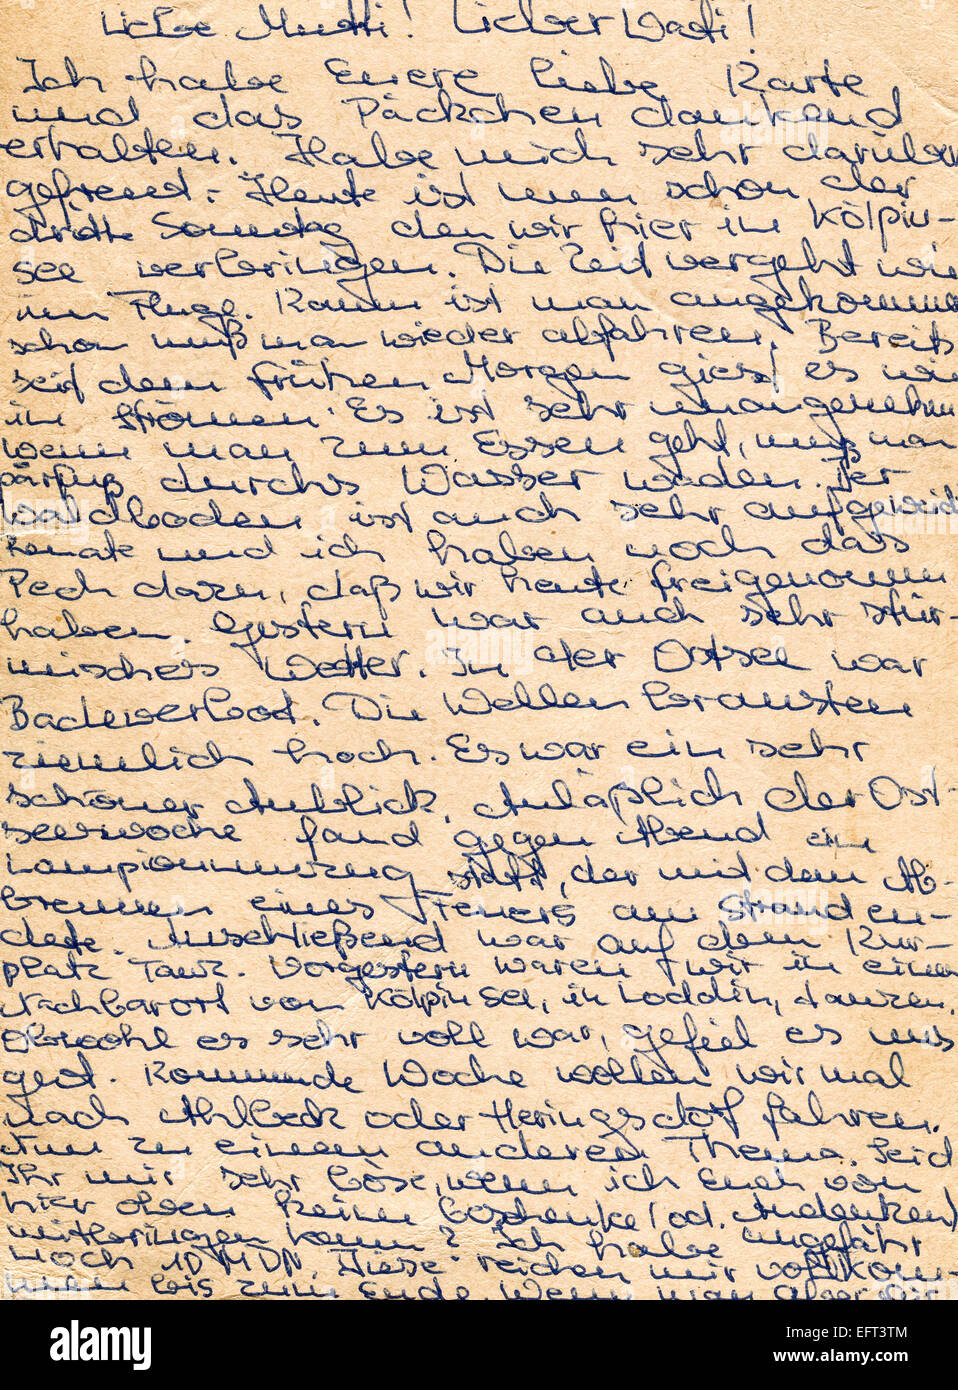 Liebe Mutti! Lieber Vati!
Ich habe Euere liebe Karte
und das Päckchen dankend
erhalten. Habe mich sehr darüber
gefreut. Heute ist nun schon der
dritte Sonntag den wir hier in Kölpin-
see verbringen. Die Zeit vergeht wie
im Fluge. Kaum ist man angekommen
schon muß man wieder abfahren. Bereits
seit dem frühen Morgen giest es wie
in Strömen. Es ist sehr unangenehm
wenn man zum Essen geht, muß man
barfuß durchs Wasser waden. Der
Waldboden ist auch sehr aufgeweicht
Renate und ich haben noch das
Pech dazu, daß wir heute freigenommen
haben. Gestern war auch sehr stür-
misches Wetter. In der Ostsee war
Badeverbot. Die Wellen brausten
ziemlich hoch. Es war ein sehr
schöner Anblick. Anläßlich der Ost-
seewoche fand gegen Abend ein
Lampionumzug statt, der mit dem Ab-
brennen eines Feuers am Strand en-
dete. Anschließend war auf dem Kur-
platz Tanz. Vorgestern waren wir in einem
Nachbarort von Kölpinsee, in Loddin, tanzen.
Obwohl es sehr voll war, gefiel es uns
gut. Kommende Woche wollen wir mal
nach Ahlbeck oder Heringsdorf fahren.
Nun zu einem anderen Thema. Seid
Ihr mir sehr böse, wenn ich Euch von
hier oben keine Geschenke (od. Andenken)
mitbringen kann? Ich habe ungefähr
noch 10 MDN. Diese reichen mir vollkom-
men bis zum Ende. Wenn man aber
alamy
Image ID: EFT3TM
www.alamy.com